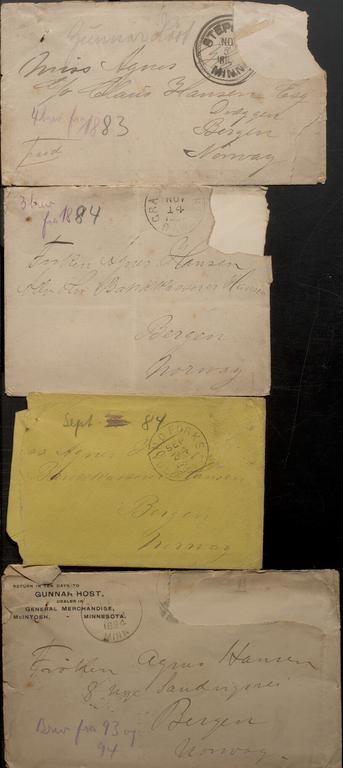 Gunnar Høst
STEPH
NO
MINN
Miss Agnes
c/o Claus Hansen Esq
Dræggen
Bergen
Norway
4 brev fra 1883
paid
3 brev
fra 1884
GRA
NOV
14
Frøken Agnes Hansen
Hansen
Bergen
Norway
Sept 84
D FORKS
SEP
Agnes
Hansen
Bergen
Norway
RETURN IN TEN DAYS TO
GUNNAR HOST,
DEALER IN
GENERAL MERCHANDISE,
McINTOSH, - MINNESOTA.
MINN
Frøken Agnes Hansen
8 nye Sandvigsvei
Bergen
Norway
Brev fra 93 og
94